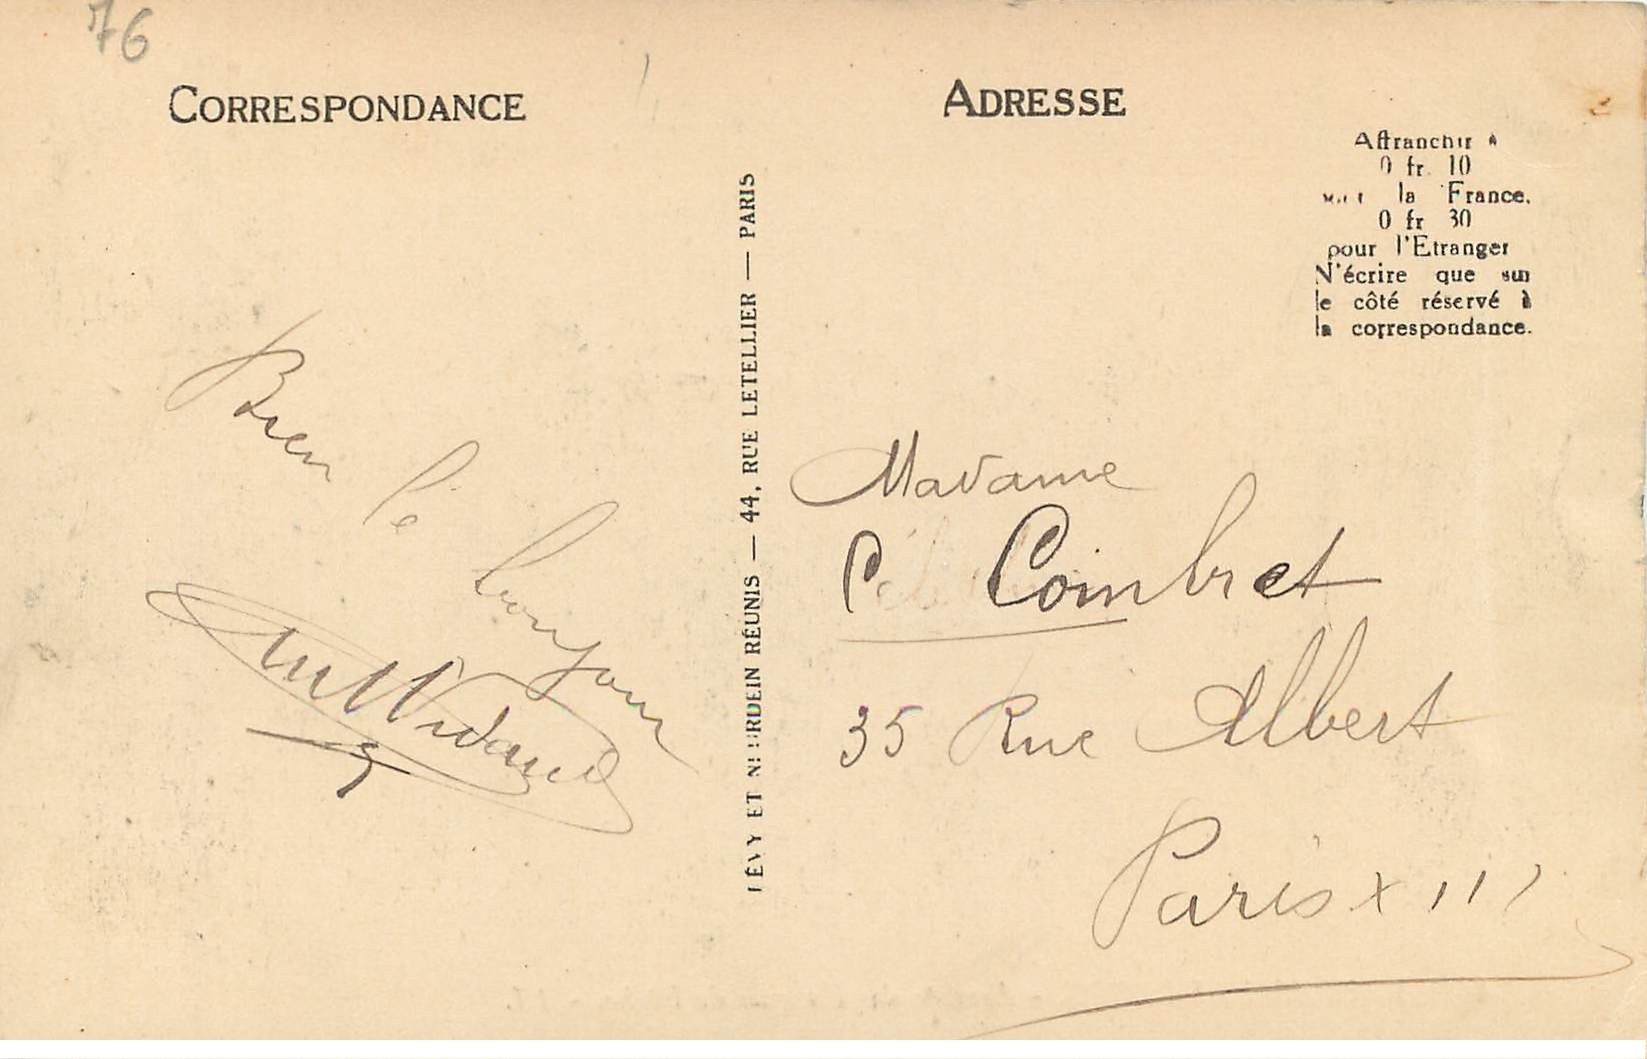 76
CORRESPONDANCE
Bien
le
bonjour
LÉVY ET NEURDEIN RÉUNIS — 44, RUE LETELLIER — PARIS
ADRESSE
Affranchir à
0 fr. 10
la France.
0 fr 30
pour l'Etranger
N'écrire que sur
le côté réservé à
la correspondance.
Madame
C. Coimbret
35 Rue Albert
Paris XIII